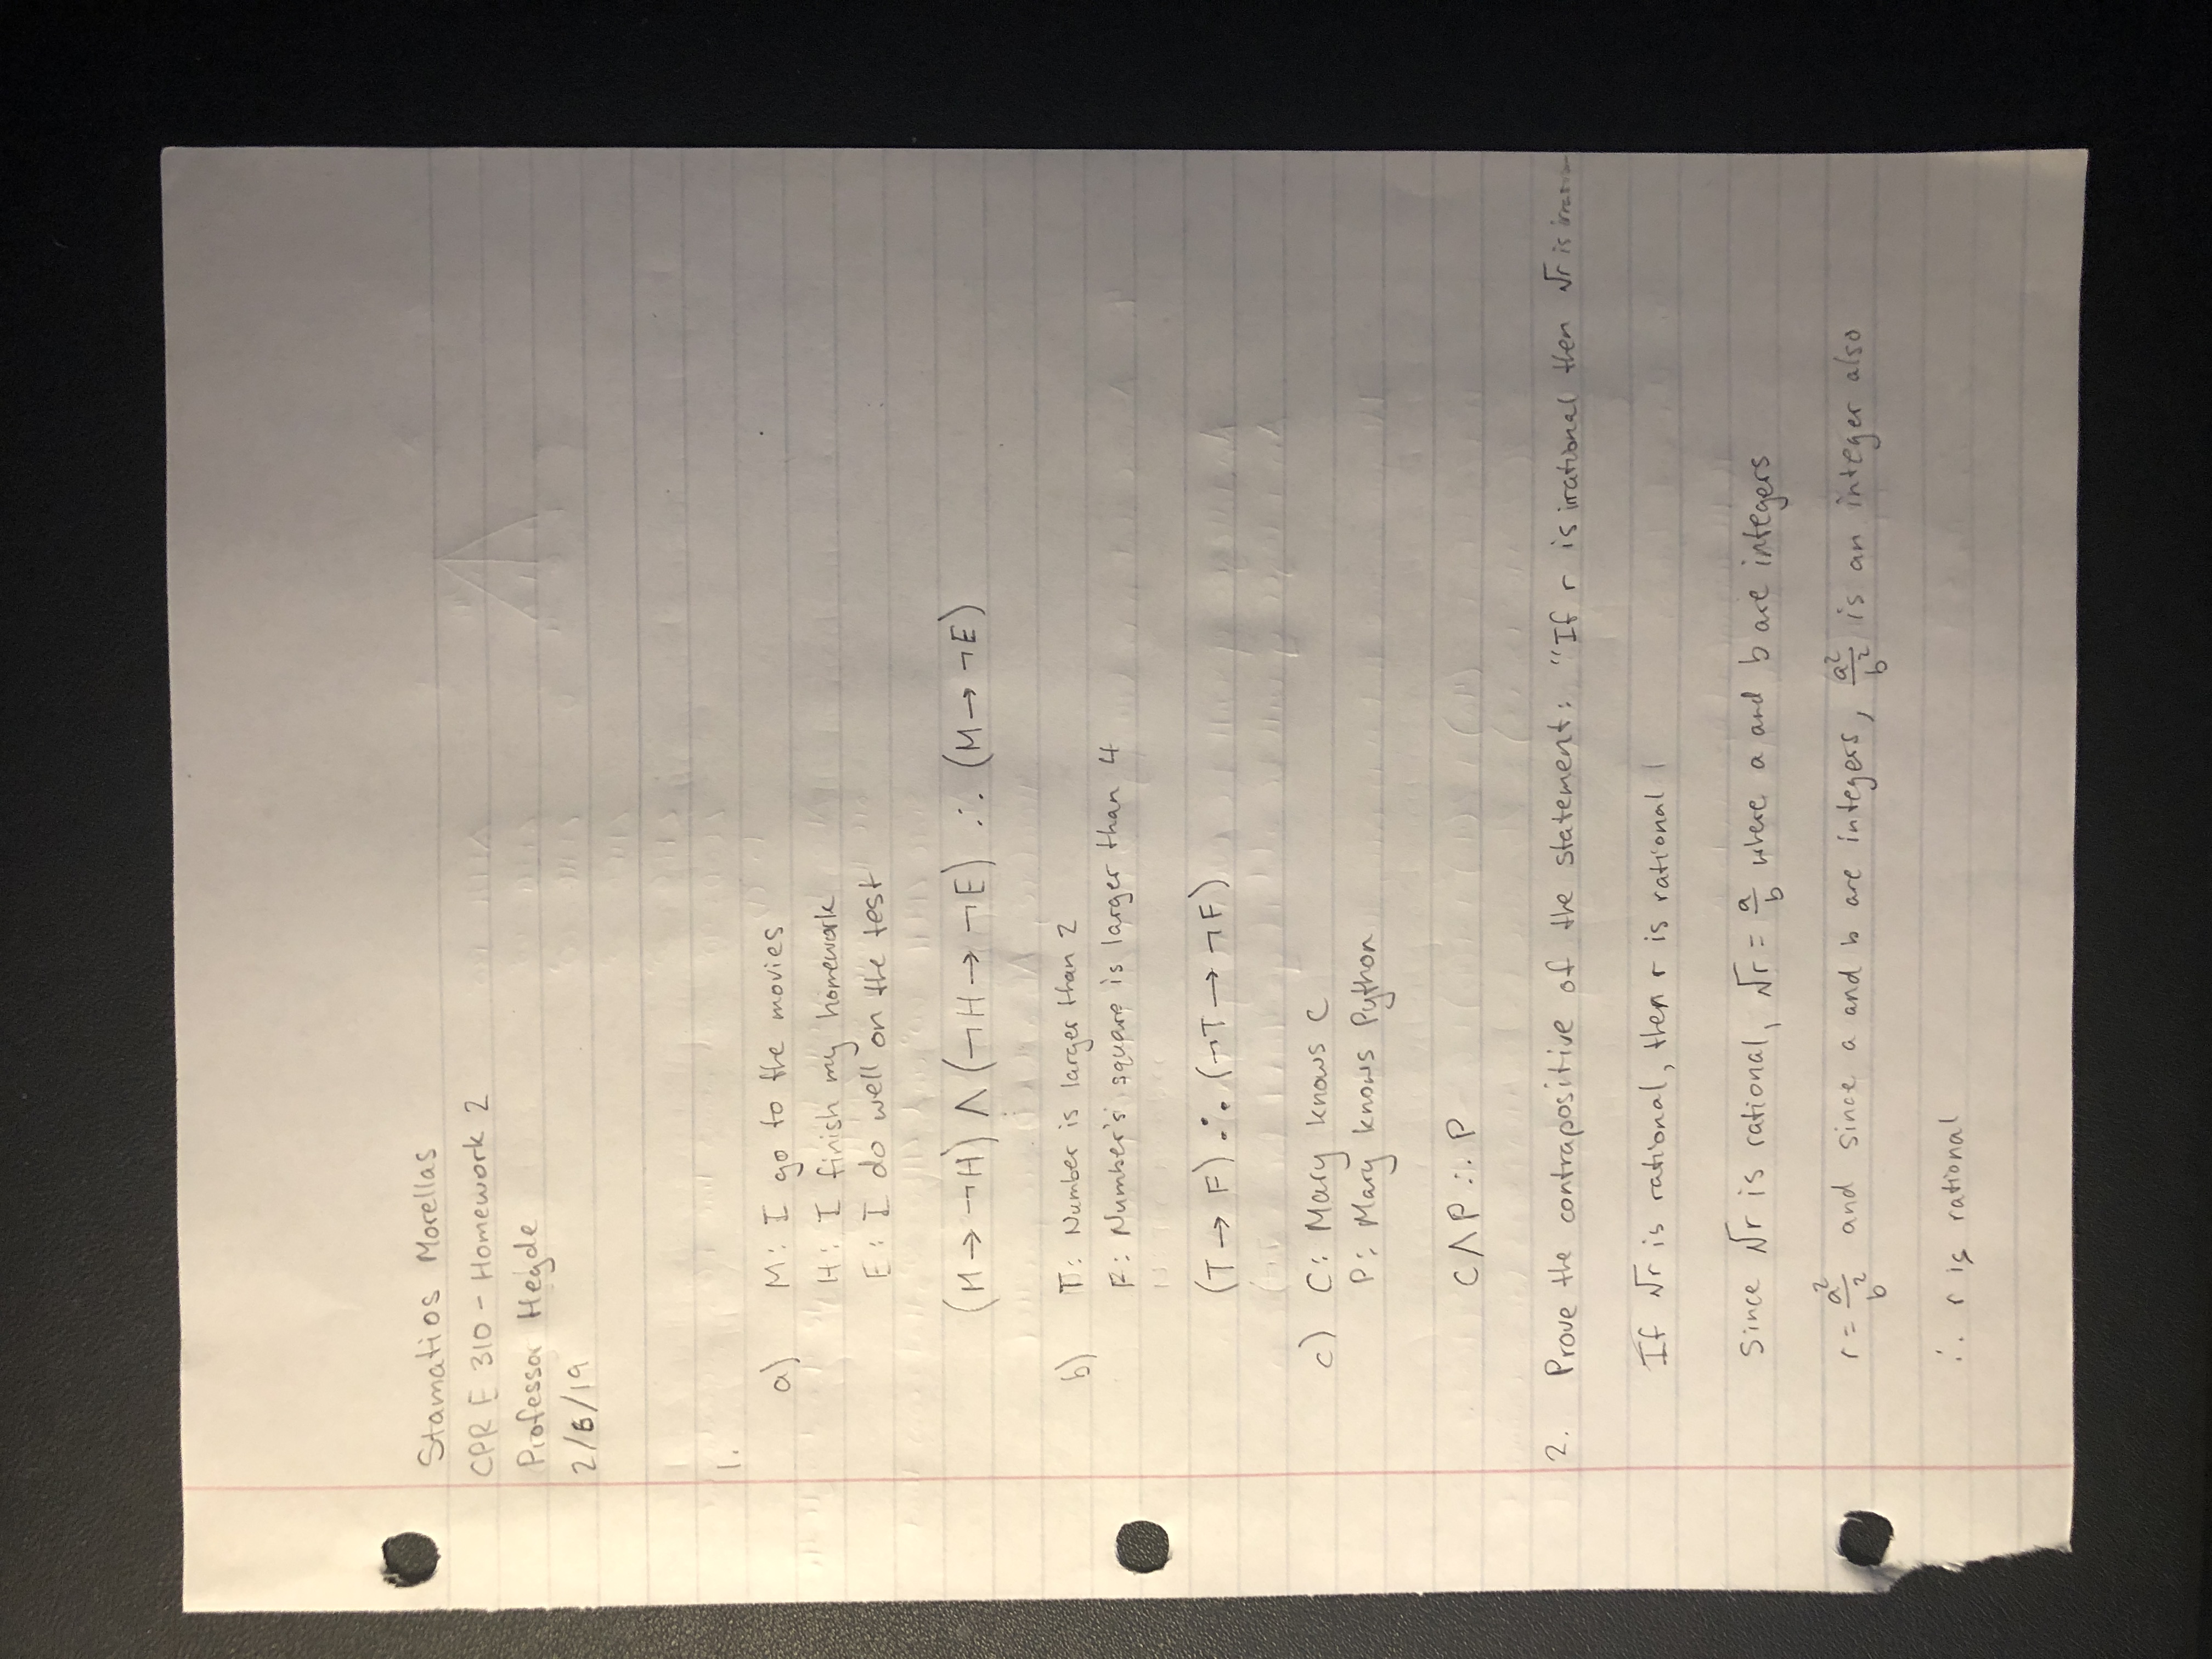 Stamatios Morellas
CPR E 310 - Homework 2
Professor Hegde
2/6/19
1.
a) M: I go to the movies
H: I finish my homework
E: I do well on the test
(M → ¬H) ∧ (¬H → ¬E) ∴ (M → ¬E)
b) T: Number is larger than 2
F: Number's square is larger than 4
(T → F) ∴ (¬T → ¬F)
c) C: Mary knows C
P: Mary knows Python
C ∧ P ∴ P
2. Prove the contrapositive of the statement: "If r is irrational then √r is
If √r is rational, then r is rational
Since √r is rational, √r = a/b where a and b are integers
r = a²/b² and since a and b are integers, a²/b² is an integer also
∴ r is rational